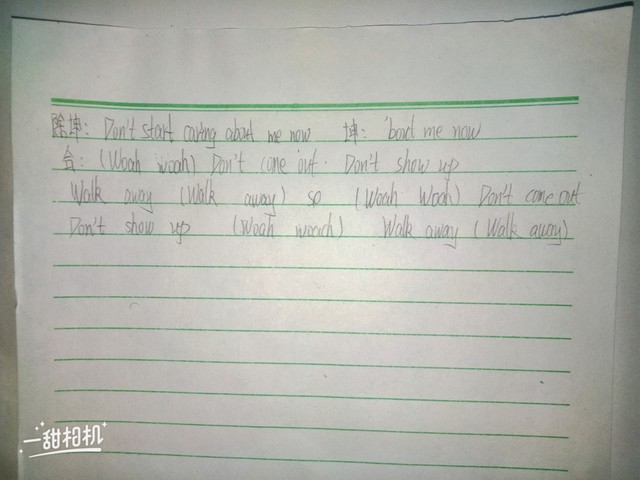 除坤: Don't start caring about me now 坤: 'bout me now
合: (Woah woah) Don't come out. Don't show up
Walk away (Walk away) so (Woah Woah) Don't come out
Don't show up (Woah woach) Walk away (Walk away)
一甜相机